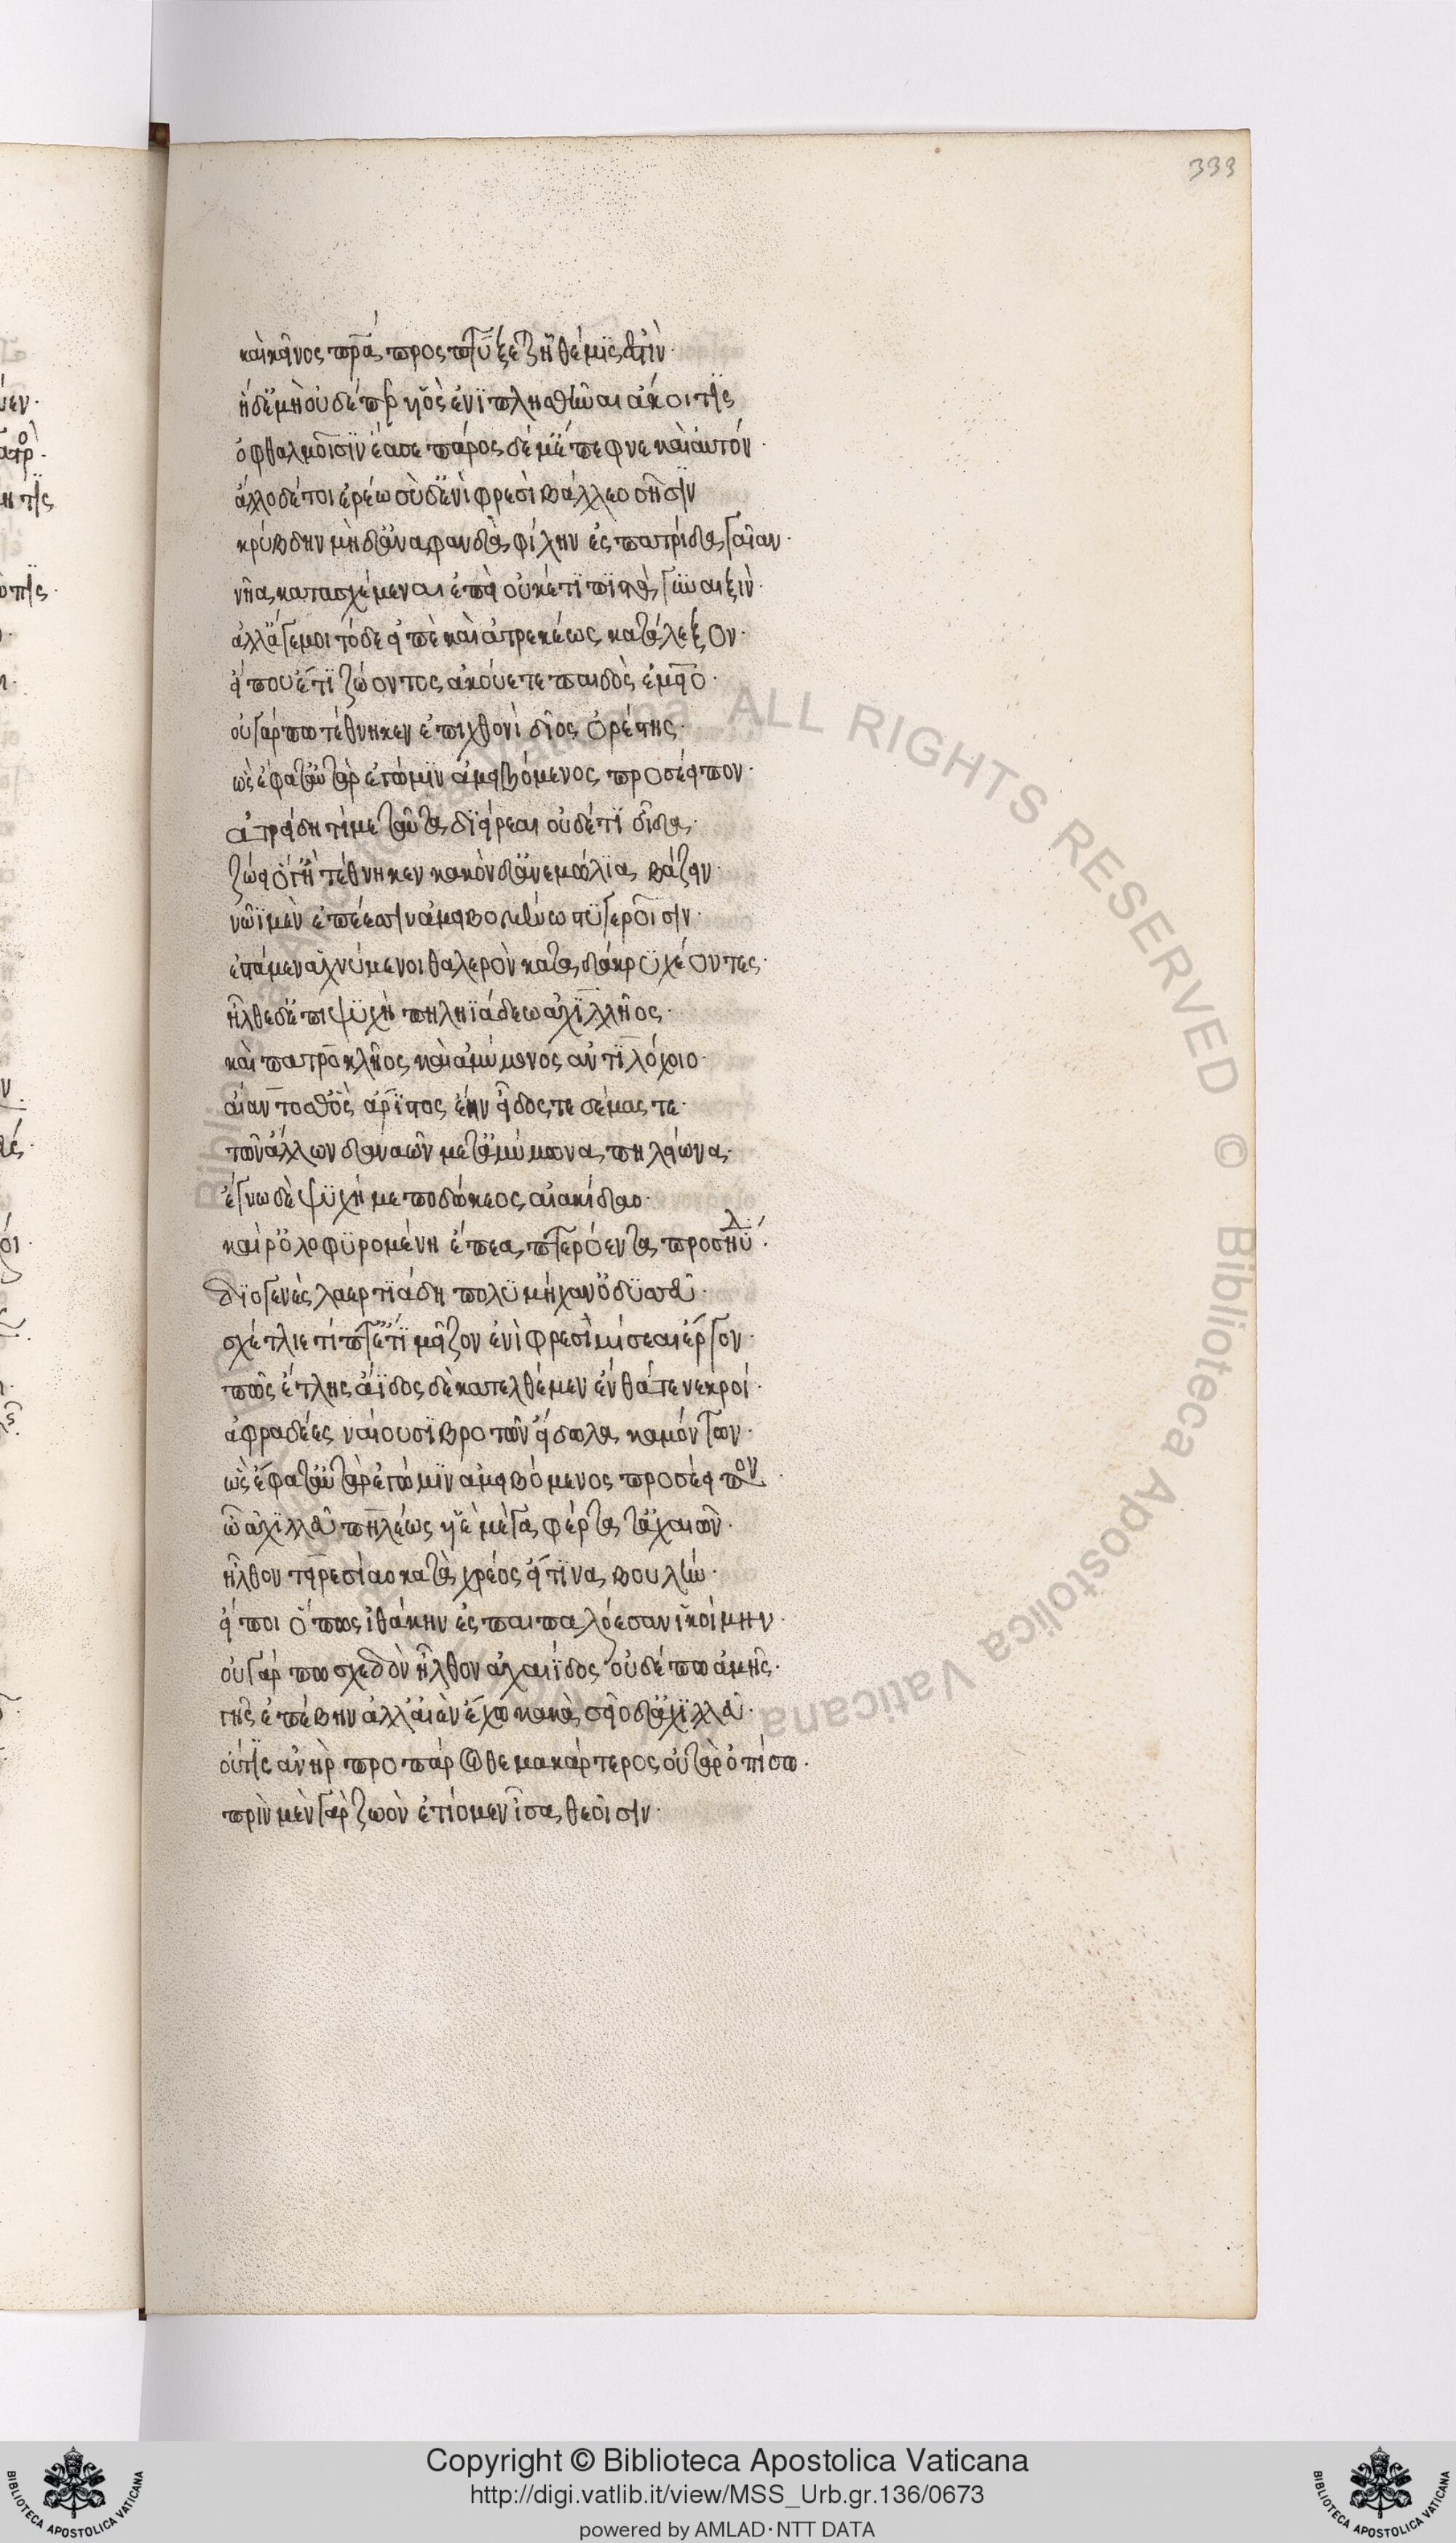 καὶ κεῖνος πρα προσπτύξεται ἣ θέμϊς ἐστὶν·
ἡ δ' ἐμὴ οὐδέ περ υἷος ἐνϊπλησθῆναι ἄκοιτις
ὀφθαλμοῖσϊν ἔασε πάρος δέ με πέφνε καὶ αὐτόν·
ἄλλο δέ τοι ἐρέω σὺ δ' ἐνὶ φρεσὶ βάλλεο σῆσϊν
κρύβδην μὴ δ' ἀναφανδὰ φίλην ἐς πατρίδα γαῖαν·
νῆα κατασχέμεναι ἐπεὶ οὐκέτϊ πϊστὰ γυναιξὶν·
ἀλλ' ἄγε μοι τόδε εἰπὲ καὶ ἀτρεκέως κατάλεξον·
εἴ που ἔτϊ ζώοντος ἀκούετε παιδὸς ἐμεῖο·
οὐ γάρ πω τέθνηκεν ἐπιχθονὶ δῖος ὀρέστης·
ὣς ἔφατ' αὐτὰρ ἐγώ μϊν ἀμειβόμενος προσέειπον·
ἀτρείδη τί με ταῦτα δϊείρεαι οὐδέ τϊ οἶδα·
ζώει ὅγ' ἢ τέθνηκεν κακὸν δ' ἀνεμώλϊα βάζειν·
νῶϊ μὲν ἐπέεσσιν ἀμειβομένω στϋγεροῖσιν·
ἕσταμεν ἀχνύμενοι θαλερὸν κατὰ δάκρϋ χέοντες·
ἦλθε δ' ἐπὶ ψϋχὴ πηληϊάδεω ἀχϊλλῆος·
καὶ πατροκλῆος καὶ ἀμύμονος ἀντϊλόχοιο·
αἴαντος θ' ὃς ἄρϊστος ἔην εἶδος τε δέμας τε·
τῶν ἄλλων δαναῶν μετ' ἀμύμονα πηλείωνα·
ἔγνω δὲ ψϋχή με ποδώκεος αἰακίδαο·
καί ῥ' ὀλοφϋρομένη ἔπεα πτερόεντα προσηύδα·
δϊογενὲς λαερτϊάδη πολϋμήχαν' ὀδϋσσεῦ·
σχέτλιε τίπτ' ἔτϊ μεῖζον ἐνὶ φρεσὶ μήσεαι ἔργον·
πῶς ἔτλης ἄϊδος δὲ κατελθέμεν ἔνθά τε νεκροί·
ἀφραδέες ναίουσϊ βροτῶν εἴδωλα καμόντων·
ὣς ἔφατ' αὐτὰρ ἐγώ μϊν ἀμειβόμενος προσέειπον·
ὦ ἀχϊλλεῦ πηλέως υἱὲ μέγα φέρτατ' ἀχαιῶν·
ἦλθον τειρεσίαο κατὰ χρέος εἴ τϊνα βουλὴν·
εἴποι ὅπως ἰθάκην ἐς παιπαλόεσσαν ἱκοίμην·
οὐ γάρ πω σχεδὸν ἦλθον ἀχαιΐδος οὐδέ πω ἀμῆς·
γῆς ἐπέβην ἀλλ' αἰὲν ἔχω κακὰ σεῖο δ' ἀχϊλλεῦ·
οὔτϊς ἀνὴρ προπάροιθε μακάρτερος οὔτ' ἂρ ὀπίσσω·
πρὶν μὲν γάρ ζωὸν ἐτίομεν ἶσα θεοῖσιν·
333
Biblioteca Apostolica Vaticana ALL RIGHTS RESERVED © Biblioteca Apostolica Vaticana
Copyright © Biblioteca Apostolica Vaticana
http://digi.vatlib.it/view/MSS_Urb.gr.136/0673
powered by AMLAD·NTT DATA
BIBLIOTECA APOSTOLICA VATICANA
BIBLIOTECA APOSTOLICA VATICANA